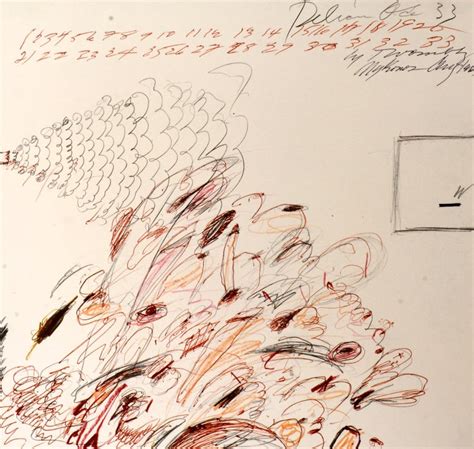 Delian Ode 33
1 2 3 4 5 6 7 8 9 10 11 12 13 14 15 16 17 18 19 20
21 22 23 24 25 26 27 28 29 30 31 32 33
Cy Twombly
Mykonos Aug
W